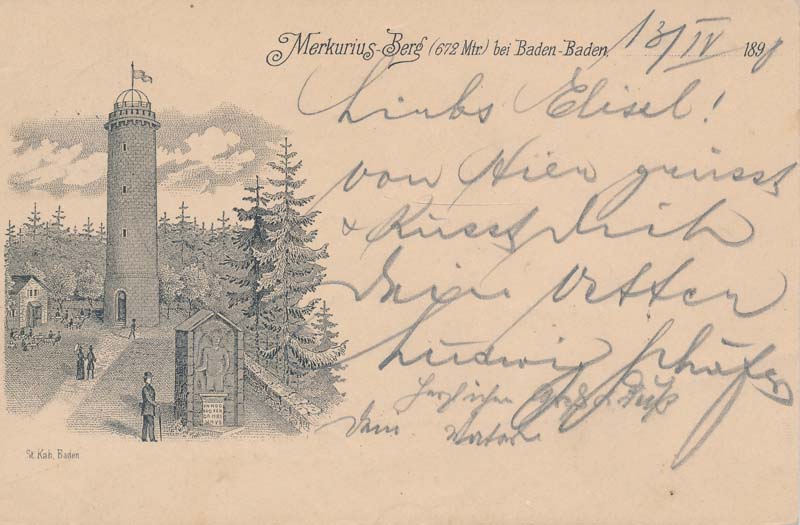 Merkurius-Berg (672 Mtr.) bei Baden-Baden, 13/IV 189
Liebs Elisel!
von Hier grüsst
& Küsst Dich
Dein Vetter
Ludwig Schäfer
Herzlichen Gruß u. Kuß
Dein Vater
St. Kah, Baden